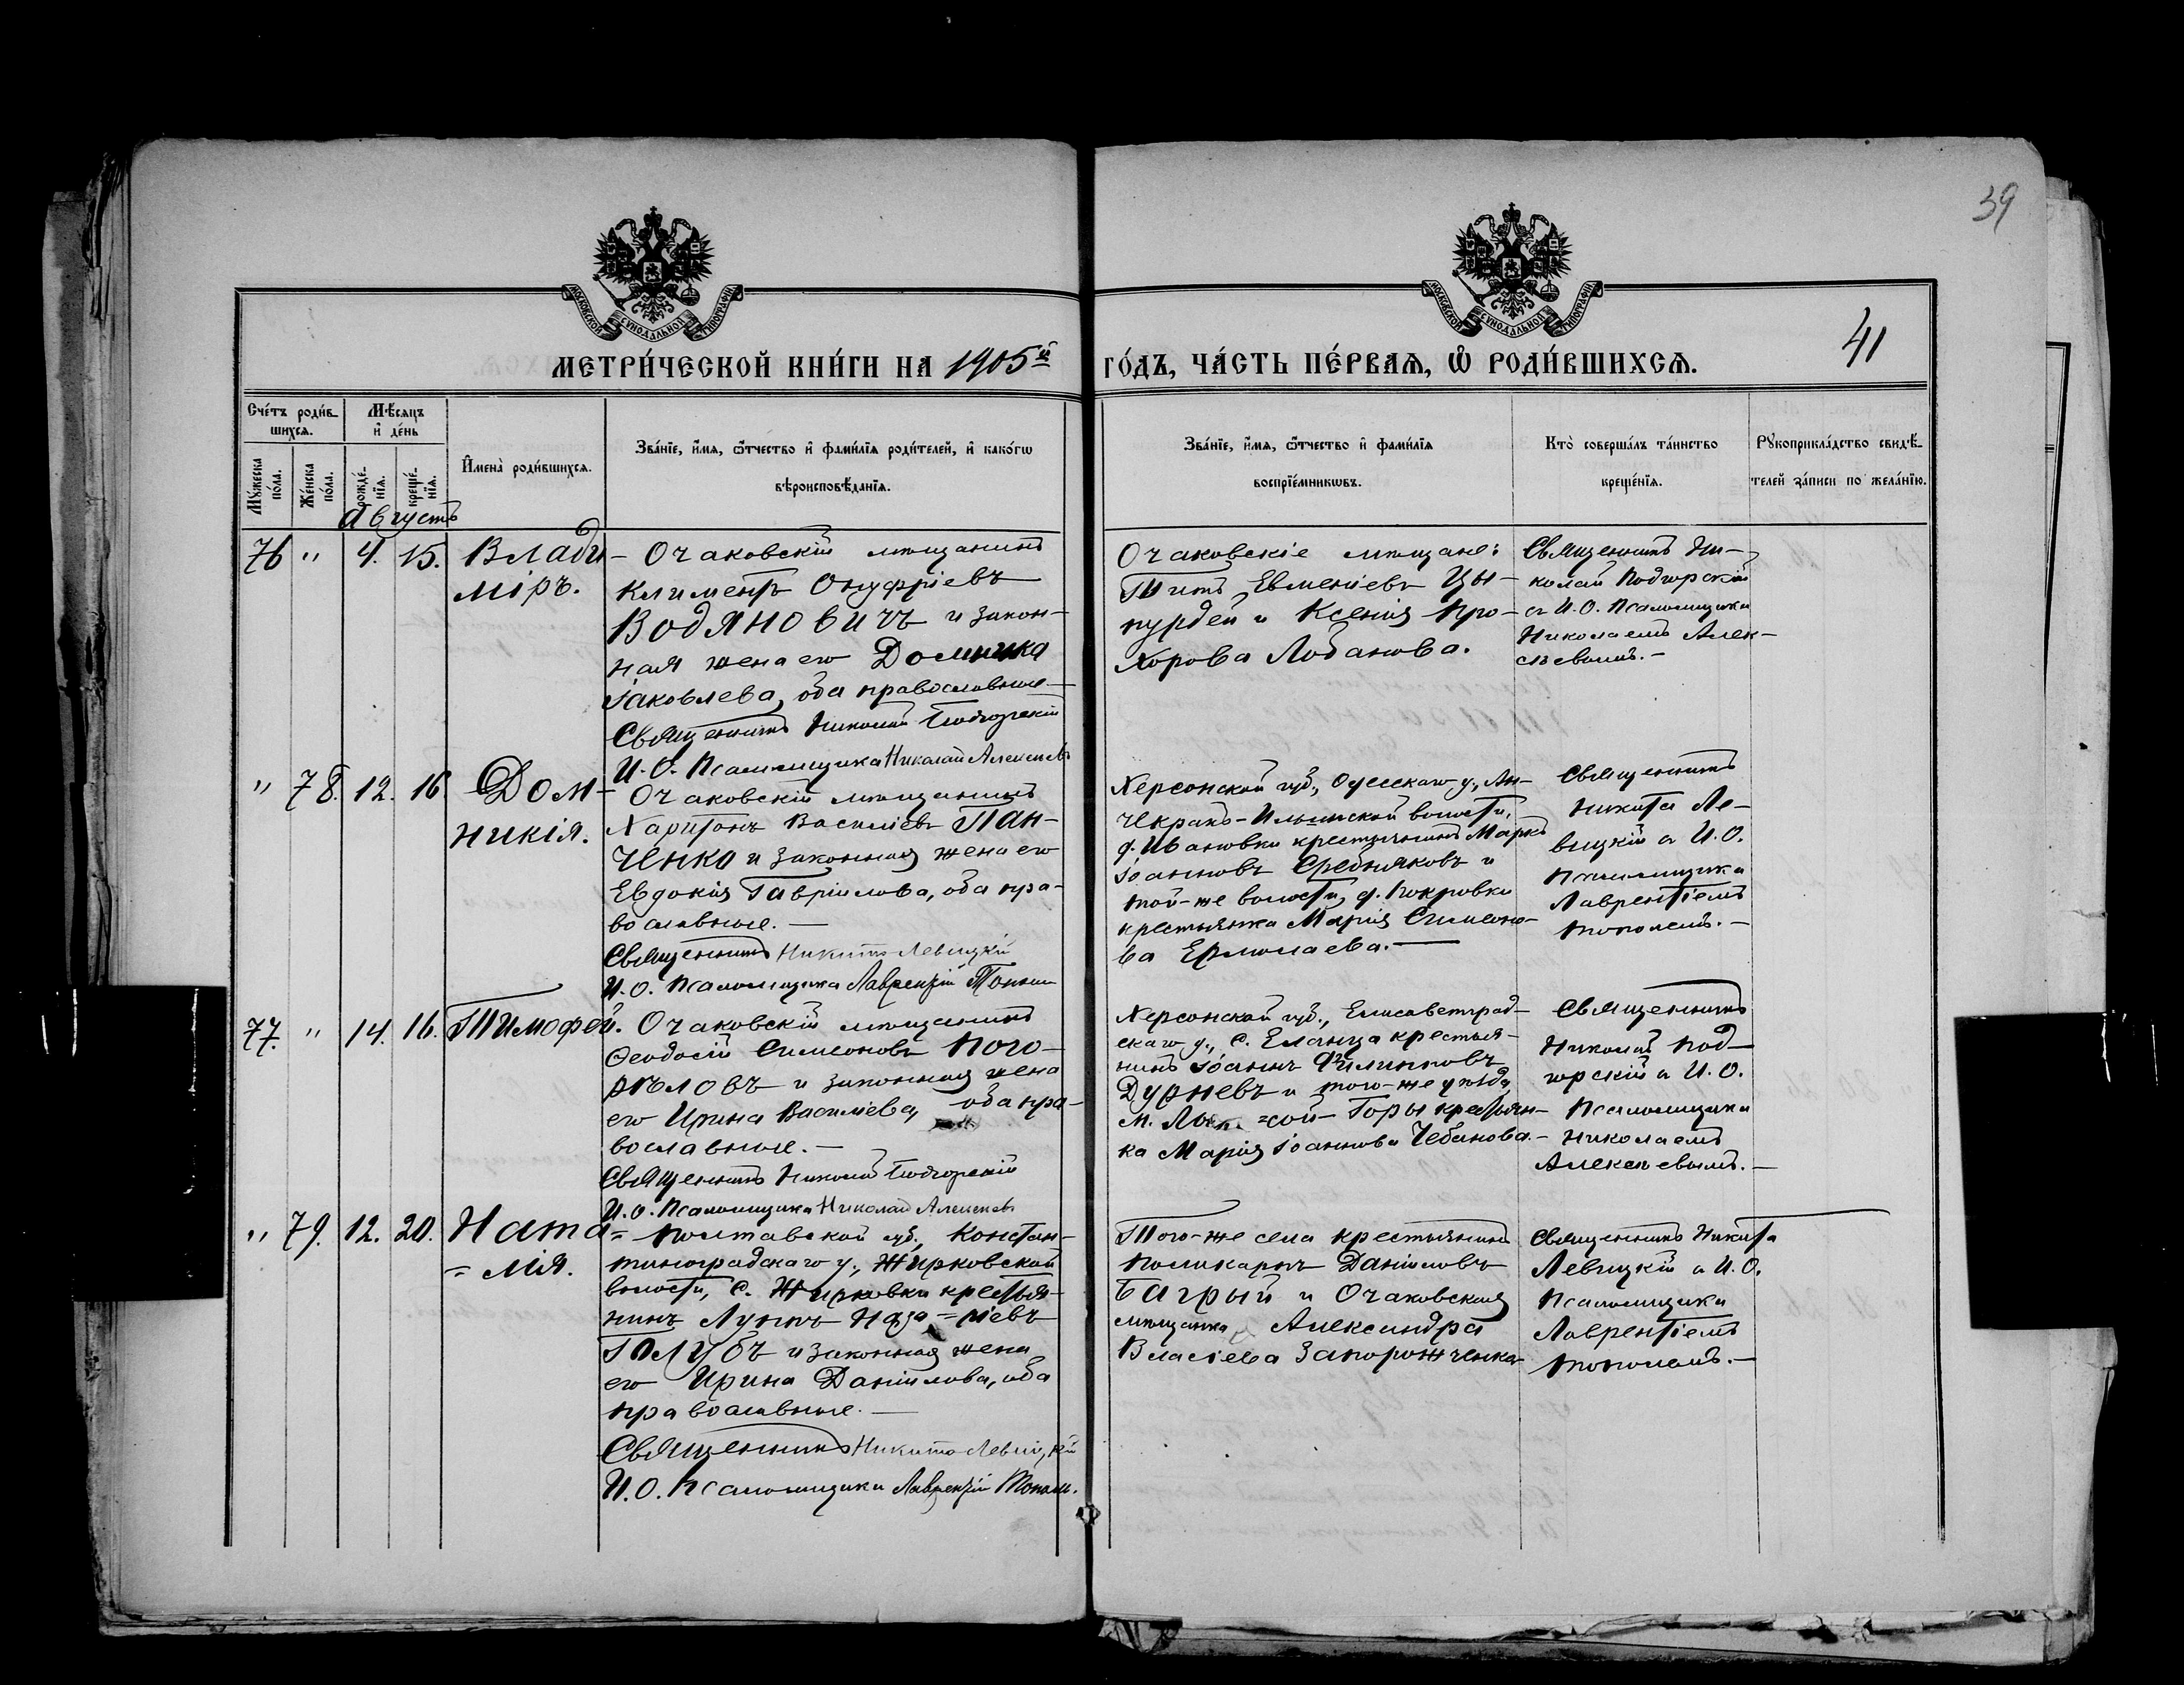 39
МОСКОВСКОЙ СѴНОДАЛЬНОЙ ТИПОГРАФІИ
МОСКОВСКОЙ СѴНОДАЛЬНОЙ ТИПОГРАФІИ
41
МЕТРИ́ЧЕСКОЙ КНИ́ГИ НА 1905й ГО́ДЪ, ЧА́СТЬ ПЕ́РВАѦ, Ѡ҆ РОДИ́ВШИХСѦ.
Сче́тъ роди́в-
шихсѧ.
Мѣ́сѧцъ
и҆ де́нь
Мꙋ́жеска
по́ла.
Же́нска
по́ла.
рожде́-
нїѧ.
креще́-
нїѧ.
И҆мена̀ роди́вшихсѧ.
Зва́нїе, и҆́мѧ, ѻ҆́тчество и҆ фами́лїѧ роди́телей, и҆ како́гѡ
вѣроисповѣ́данїѧ.
Зва́нїе, и҆́мѧ, ѻ҆́тчество и҆ фами́лїѧ
воспрїе́мникѡвъ.
Кто̀ соверша́лъ та́инство
креще́нїѧ.
Рꙋкоприкла́дство свидѣ́-
телей за́писи по жела́нїю.
Августъ
76 " 4. 15. Влади-
міръ.
Очаковскій мѣщанинъ
Климентъ Онуфріевъ
Водяновичъ и закон-
ная жена его Домника
Іаковлева, оба православные.—
Священникъ Николай Подгорскій
И. О. Псаломщика Николай Алексѣевъ
Очаковскіе мѣщане:
Титъ Евменіевъ Цы-
пурдей и Ксенія Про-
хорова Лобанова.
Священникъ Ни-
колай Подгорскій
а И. О. Псаломщика
Николаемъ Алек-
сѣевымъ.—
" 78. 12. 16. Дом-
никія.
Очаковскій мѣщанинъ
Харитонъ Василіевъ Пан-
ченко и законная жена его
Евдокія Гавріилова, оба пра-
вославные.—
Священникъ Никита Левицкій
И. О. Псаломщика Лаврентій Тополь
Херсонской губ., Одесскаго у., Ан-
чекракъ-Ильинской волости,
д. Ивановки крестьянинъ Маркъ
Іоанновъ Средняковъ и
той-же волости, д. Покровки
крестьянка Марія Симеоно-
ва Ермолаева.—
Священникъ
Никита Ле-
вицкій а И. О.
Псаломщика
Лаврентіемъ
Тополемъ.—
77. " 14. 16. Тимофей.
Очаковскій мѣщанинъ
Ѳеодосій Симеоновъ Пого-
рѣловъ и законная жена
его Ирина Василіева, оба пра-
вославные.—
Священникъ Николай Подгорскій
И. О. Псаломщика Николай Алексѣевъ
Херсонской губ., Елисаветград-
скаго у., с. Еланца крестья-
нинъ Іоаннъ Филипповъ
Дурневъ и того-же уѣзда,
м. Лысой-Горы крестьян-
ка Марія Іоаннова Чебанова.—
Священникъ
Николай Под-
горскій а И. О.
Псаломщика
Николаемъ
Алексѣевымъ.—
" 79. 12. 20. Ната=
=лія.
Полтавской губ., Констан-
тиноградскаго у., Жирковской
волости, с. Жирковки крестья-
нинъ Луппъ Наза=ріевъ
Голубъ и законная жена
его Ирина Даніилова, оба
православные.—
Священникъ Никита Левицкій
И. О. Псаломщика Лаврентій Тополь.
Того-же села крестьянинъ
Поликарпъ Даніиловъ
Багрый и Очаковская
мѣщанка Александра
Власіева Запорожченко
Священникъ Никита
Левицкій а И. О.
Псаломщика
Лаврентіемъ
Тополемъ.—